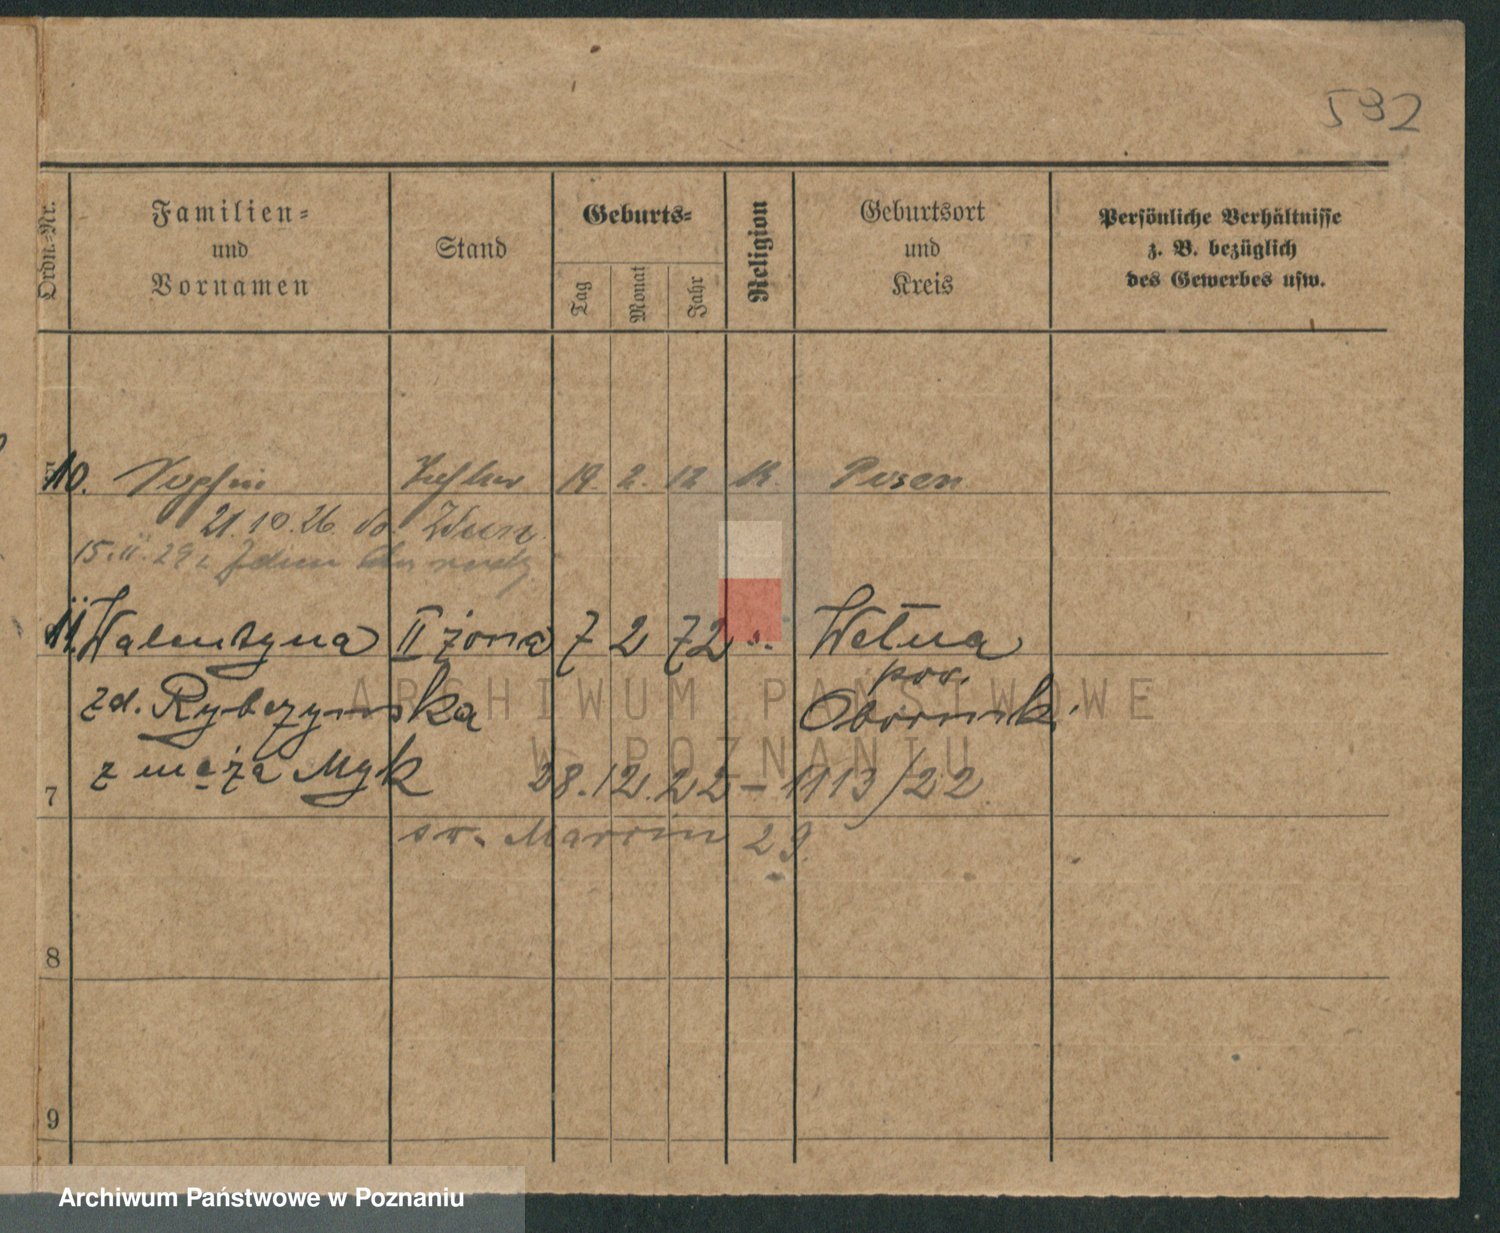 532
Ordn.-Nr.
Familien-
und
Vornamen
Stand
Geburts-
Tag
Monat
Jahr
Religion
Geburtsort
und
Kreis
Persönliche Verhältnisse
z. B. bezüglich
des Gewerbes usw.
10. Sophie Tochter 19. 2. 12 k. Posen
21.10.26. do
15.11.29
11. Walentyna II żona 7 2 72 Wełna
pow.
zd. Rybczyńska Obornicki
z męża Myk 28.12.22 – 1113/22
7
św. Marcin 29.
8
9
ARCHIWUM PAŃSTWOWE
W POZNANIU
Archiwum Państwowe w Poznaniu